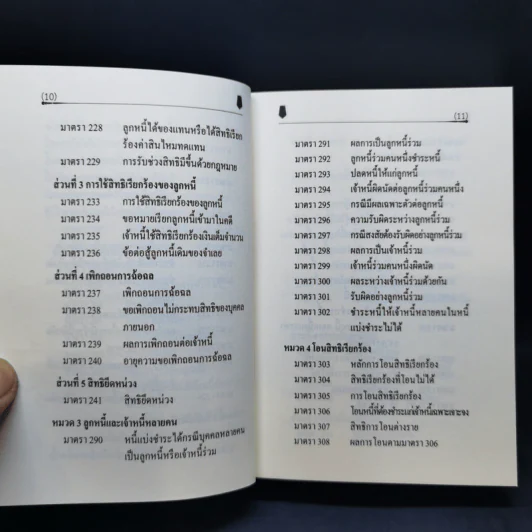 (10)
มาตรา 228 ลูกหนี้ได้ของแทนหรือได้สิทธิเรียก
ร้องค่าสินไหมทดแทน
มาตรา 229 การรับช่วงสิทธิมีขึ้นด้วยกฎหมาย
ส่วนที่ 3 การใช้สิทธิเรียกร้องของลูกหนี้
มาตรา 233 การใช้สิทธิเรียกร้องของลูกหนี้
มาตรา 234 ขอหมายเรียกลูกหนี้เข้ามาในคดี
มาตรา 235 เจ้าหนี้ใช้สิทธิเรียกร้องเงินเต็มจำนวน
มาตรา 236 ข้อต่อสู้ลูกหนี้เดิมของจำเลย
ส่วนที่ 4 เพิกถอนการฉ้อฉล
มาตรา 237 เพิกถอนการฉ้อฉล
มาตรา 238 ขอเพิกถอนไม่กระทบสิทธิของบุคคล
ภายนอก
มาตรา 239 ผลการเพิกถอนต่อเจ้าหนี้
มาตรา 240 อายุความขอเพิกถอนการฉ้อฉล
ส่วนที่ 5 สิทธิยึดหน่วง
มาตรา 241 สิทธิยึดหน่วง
หมวด 3 ลูกหนี้และเจ้าหนี้หลายคน
มาตรา 290 หนี้แบ่งชำระได้กรณีบุคคลหลายคน
เป็นลูกหนี้หรือเจ้าหนี้ร่วม
(11)
มาตรา 291 ผลการเป็นลูกหนี้ร่วม
มาตรา 292 ลูกหนี้ร่วมคนหนึ่งชำระหนี้
มาตรา 293 ปลดหนี้ให้แก่ลูกหนี้
มาตรา 294 เจ้าหนี้ผิดนัดต่อลูกหนี้ร่วมคนหนึ่ง
มาตรา 295 กรณีมีผลเฉพาะตัวต่อลูกหนี้
มาตรา 296 ความรับผิดระหว่างลูกหนี้ร่วม
มาตรา 297 กรณีสงสัยต้องรับผิดอย่างลูกหนี้ร่วม
มาตรา 298 ผลการเป็นเจ้าหนี้ร่วม
มาตรา 299 เจ้าหนี้ร่วมคนหนึ่งผิดนัด
มาตรา 300 ผลระหว่างเจ้าหนี้ร่วมด้วยกัน
มาตรา 301 รับผิดอย่างลูกหนี้ร่วม
มาตรา 302 ชำระหนี้ให้เจ้าหนี้หลายคนในหนี้
แบ่งชำระไม่ได้
หมวด 4 โอนสิทธิเรียกร้อง
มาตรา 303 หลักการโอนสิทธิเรียกร้อง
มาตรา 304 สิทธิเรียกร้องที่โอนไม่ได้
มาตรา 305 การโอนสิทธิเรียกร้อง
มาตรา 306 โอนหนี้ที่ต้องชำระแก่เจ้าหนี้เฉพาะเจาะจง
มาตรา 307 สิทธิการโอนต่างราย
มาตรา 308 ผลการโอนตามมาตรา 306